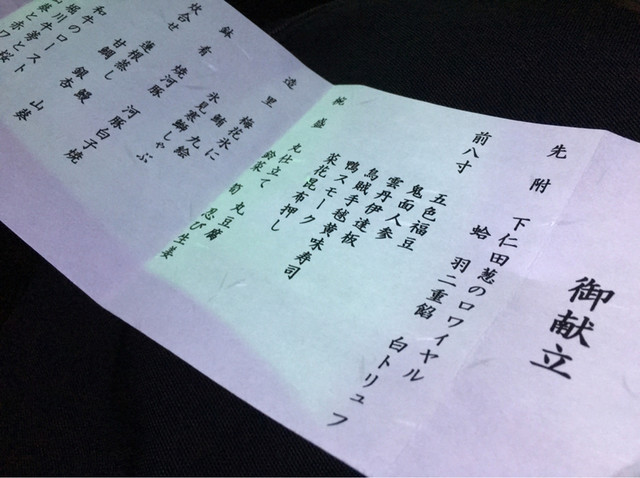 御献立
先附 下仁田葱のロワイヤル
蛤 羽二重餡 白トリュフ
前八寸 五色福豆
鬼面人参
雲丹伊達板
烏賊手毬黄味寿司
鴨スモーク
菜花昆布押し
椀盛 丸仕立て 丸豆腐
鈴菜 筍 忍び生姜
造里 梅花氷に
鮪 九絵
氷見寒鰤しゃぶ
鉢肴 焼河豚 河豚白子焼
炊合せ 蓮根蒸し
甘鯛 銀杏 鰻 山葵
和牛のロースト
堀川牛蒡と
山葵と赤ワ